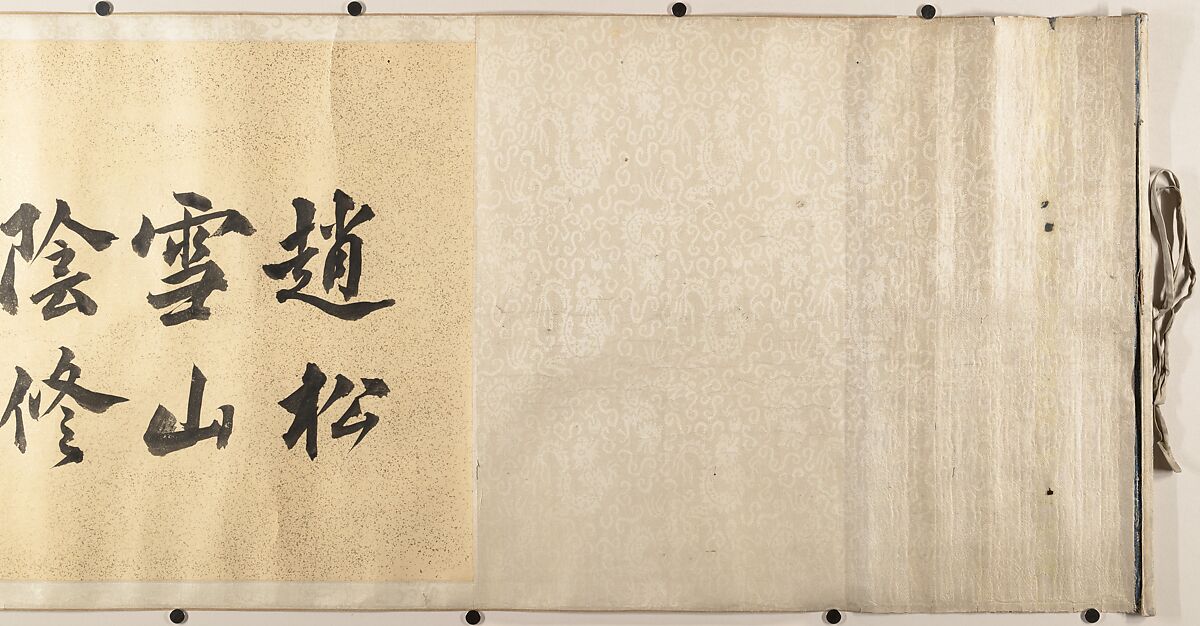 趙松
雪山
陰修